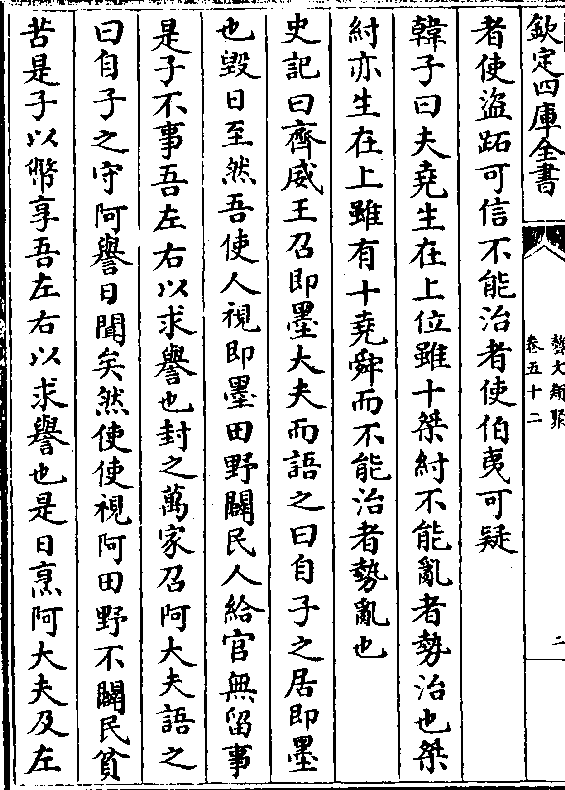 欽定四庫全書
藝文類聚
卷五十二
二
者使盜跖可信不能治者使伯夷可疑
韓子曰夫堯生在上位雖十桀紂不能亂者勢治也桀
紂亦生在上雖有十堯舜而不能治者勢亂也
史記曰齊威王召即墨大夫而語之曰自子之居即墨
也毀日至然吾使人視即墨田野闢民人給官無留事
是子不事吾左右以求譽也封之萬家召阿大夫語之
曰自子之守阿譽日聞矣然使使視阿田野不闢民貧
苦是子以幣享吾左右以求譽也是日烹阿大夫及左